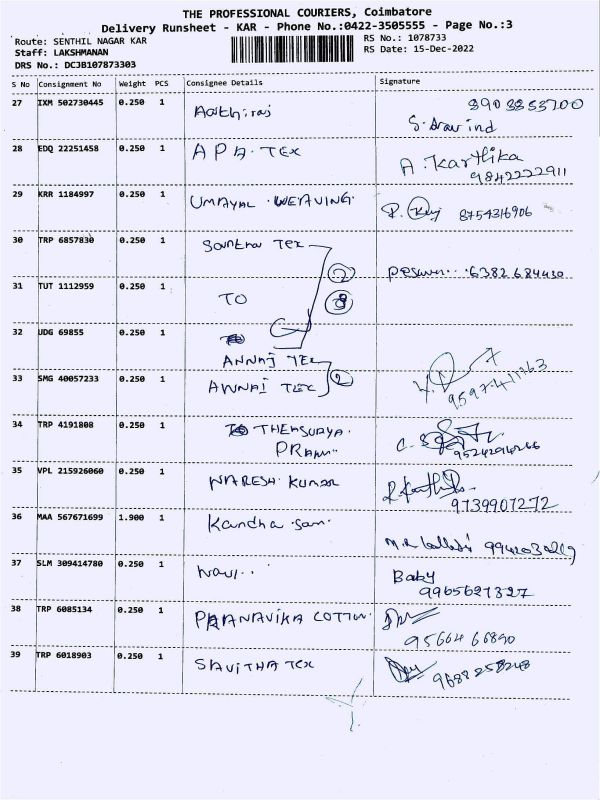 THE PROFESSIONAL COURIERS, Coimbatore
Delivery Runsheet - KAR - Phone No.:0422-3505555 - Page No.:3
Route: SENTHIL NAGAR KAR
RS No.: 1078733
Staff: LAKSHMANAN
RS Date: 15-Dec-2022
DRS No.: DCJB107873303
S No Consignment No Weight PCS Consignee Details Signature
27 IXM 502730445 0.250 1
S. Aravind
28 EDQ 22251458 0.250 1 APA. TEX A. Karthika
9842222911
29 KRR 1184997 0.250 1 UMAYAL. WEAVING.
8754316906
30 TRP 6857830 0.250 1 TEX
6382684430
31 TUT 1112959 0.250 1 TO
32 UDG 69855 0.250 1
ANNAI TEX
33 SMG 40057233 0.250 1 ANNAI TEX 2
34 TRP 4191808 0.250 1
35 VPL 215926060 0.250 1 NARESH KUMAR
9739907272
36 MAA 567671699 1.900 1 Kandha
37 SLM 309414780 0.250 1 Baby
9965621327
38 TRP 6085134 0.250 1 PRANAVIKA COTTON
9566466890
39 TRP 6018903 0.250 1 SAVITHA TEX